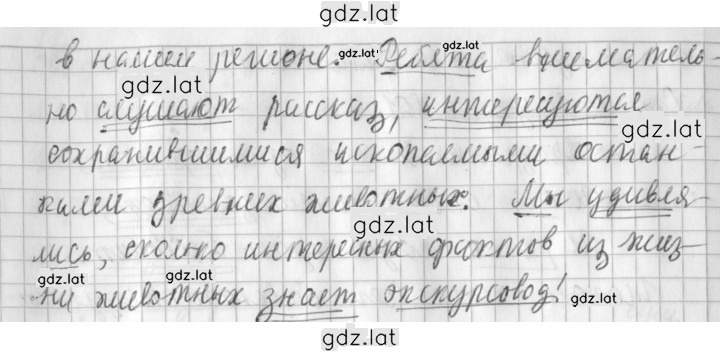 gdz.lat
в нашем регионе. gdz.lat Ребята вниматель-
gdz.lat gdz.lat
но слушают рассказ, интересуются
gdz.lat
сохранившимися ископаемыми остан-
ками древних животных. Мы удивля-
gdz.lat
лись, сколько интересных фактов из жиз-
gdz.lat gdz.lat
ни животных знает экскурсовод! gdz.lat
gdz.lat